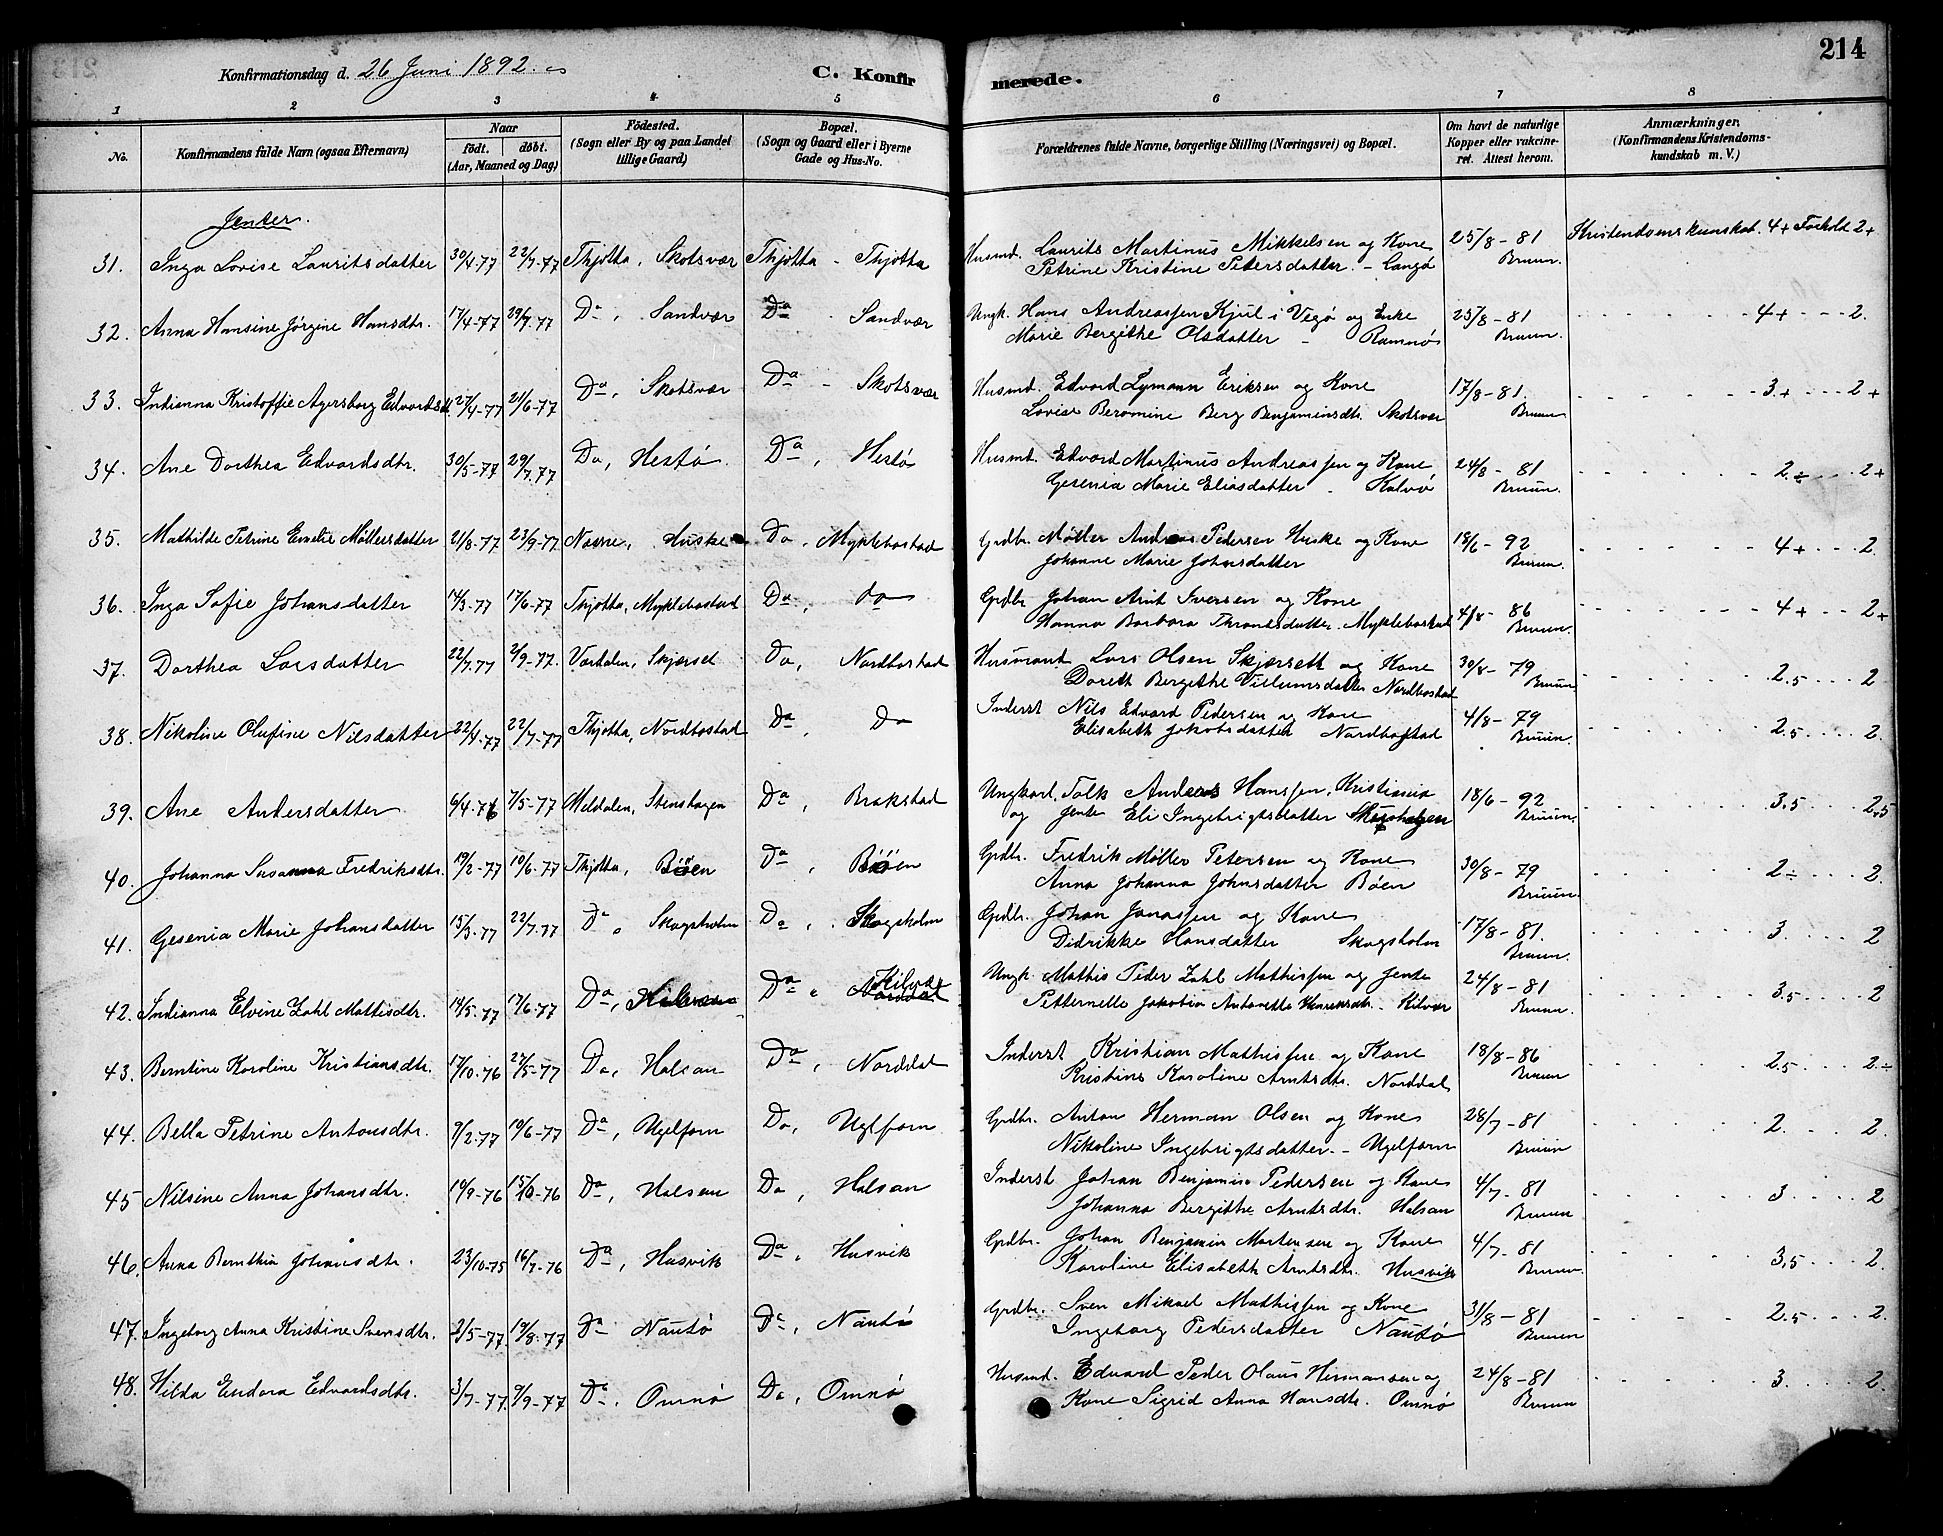 214
Konfirmationsdag d. 26 Juni 1892.
C. Konfir merede.
1 2 3 4 5 6 7 8
No.
Konfirmandens fulde Navn (ogsaa Efternavn)
Naar
født. døbt.
(Aar, Maaned og Dag)
Födested.
(Sogn eller By og paa Landet
tillige Gaard)
Bopæl.
(Sogn og Gaard eller i Byerne
Gade og Hus-No.
Forældrenes fulde Navne, borgerlige Stilling (Næringsvei) og Bopæl.
Om havt de naturlige
Kopper eller vakcine-
ret. Attest herom.
Anmærkninger.
(Konfirmandens Kristendoms-
kundskab m. V.)
Jenter.
31. Inga Lovise Lauritsdatter 30/4-77 22/7-77 Thjøtta, Skotsvær Thjøtta - Thjøtta Husmd. Laurits Martinus Mikkelsen og Kone 25/8-81 Kristendomskunskab. 4+ Forhold 2+
Petrine Kristine Petersdatter. - Langø Bruun.
32. Anna Hansine Jørgine Hansdtr. 17/4-77 29/7-77 Da, Sandvær Da - Sandvær Ungk. Hans Andreassen Kjul i Vegø og Enke 25/8-81 4+ 2.
Marie Bergithe Olsdatter - Ramnøs Bruun.
33. Indianna Kristoffie Agersborg Edvardsd. 27/4-77 21/6-77 Da, Skotsvær Da - Skotsvær Husmd. Edvard Lymann Eriksen og Kone 17/8-81. 3+ 2+
Lovise Beromine Berg Benjaminsdtr. Skotsvær Bruun
34. Ane Dorthea Edvardsdtr. 30/5-77 29/7.77 Da, Hestø Da, Hestø Husmd. Edvard Martinus Andreassen og Kone 24/8-81 2÷ 2+
Gesenia Marie Eliasdatter - Kalvø Bruun.
35. Mathilde Petrine Emelie Møllersdatter 21/8-77 23/9-77 Nesne, Huske Da, Myklebostad Grdbr. Møller Andreas Pedersen Huske og Kone 18/6-92 4+ 2.
Johanne Marie Johnsdatter Bruun.
36. Inga Sofie Johansdatter 14/3-77 17/6-77 Thjøtta, Myklebostad Da, do Grdbr Johan Arnt Iversen og Kone 4/8-86 4+ 2+
Hanna Barbara Thronesdatter. Myklebostad Bruun.
37. Dorthea Larsdatter 22/7.77 2/9-77. Værdalen, Skjærset Da, Nordbostad Husmand Lars Olsen Skjærsett og Kone 30/8-79 2.5 2
Doreth Bergethe Villumsdatter Nordbostad Bruun
38. Nikoline Olufine Nilsdatter 22/4-77 22/7-77 Thjøtta, Nordbostad Da, Do Inderst Nils Edvard Pedersen og Kone 4/8-79 2.5 2.
Elisabeth Jakobsdatter Nordbostad Bruun.
39. Ane Andersdatter 6/4-76 7/5-77 Meldalen, Stenshagen Da, Brakstad Ungkarl, Falk Anders Hanssen, Kristiania 18/6-92 3.5 2.5
og Jente Eli Ingebrigtsdatter Bruun.
40. Johanna Susanna Fredriksdtr. 19/2-77 10/6-77 Thjøtta, Böen Da, Böen Grdbr. Fredrik Møller Petersen og Kone 30/8-79 2÷ 2.
Anna Johanna Johnsdatter Böen Bruun
41. Gesenia Marie Johansdatter 15/3-77 22/7.77 Da, Skogsholm Da, Skogsholm Grdbr. Johan Jonassen og Kone 17/8-81. 3. 2
Didrikke Hansdatter Skogsholm Bruun.
42. Indianna Elvine Zahl Mattisdtr. 19/5-77 17/6-77 Da, Da, Kilvær Ungk. Mathis Peder Zahl Mathissen og Jente 24/8-81 3.5 2
Petternelle Jakobia Antonette Henriksdtr. - Kilvær Bruun.
43. Berntine Karoline Kristiansdtr. 17/10-76 27/5-77 Da, Halsan Da, Norddal Inderst Kristian Mathissen og Kone 18/8-86 2.5 2÷
Kristine Karoline Arntsdtr. Norddal Bruun
44. Bella Petrine Antonsdtr. 9/2-77 19/6-77 Da, Ugelfarn Da, Uglfarn Grdbr. Anton Herman Olsen og Kone 28/7-81 2. 2.
Nikoline Ingebrigtsdatter. - Ugelfarn Bruun
45 Nilsine Anna Johansdtr. 19/9-76 15/10-76 Da, Halsan Da, Halsan Inderst Johan Benjamin Pedersen og Kone 4/7-81 3. 2
Johanna Bergithe Arntsdtr. Halsan Bruun
46. Anna Bernthia Johansdtr. 23/10-75 16/7-76 Da, Husvik Da, Husvik Grdbr. Johan Benjamin Mortensen og Kone 4/7-81 3,5 2.
Karoline Elisabeth Arntsdtr. Husvik Bruun.
47. Ingeborg Anna Kristine Svensdtr. 2/5-77 19/8-77 Da Nautø Da, Nautø Grdbr. Sven Mikael Mathissen og Kone 31/8-81 2.5 2.
Ingeborg Pedersdatter Nautø Bruun
48. Hilda Endora Edvardsdtr. 3/7-77. 9/9-77 Da. Omnø Da, Omnø Husmd. Edvard Peder Olaus Hermansen og 24/8-81 3. 2.
Kone Sigrid Anna Hansdtr. Omnø Bruun